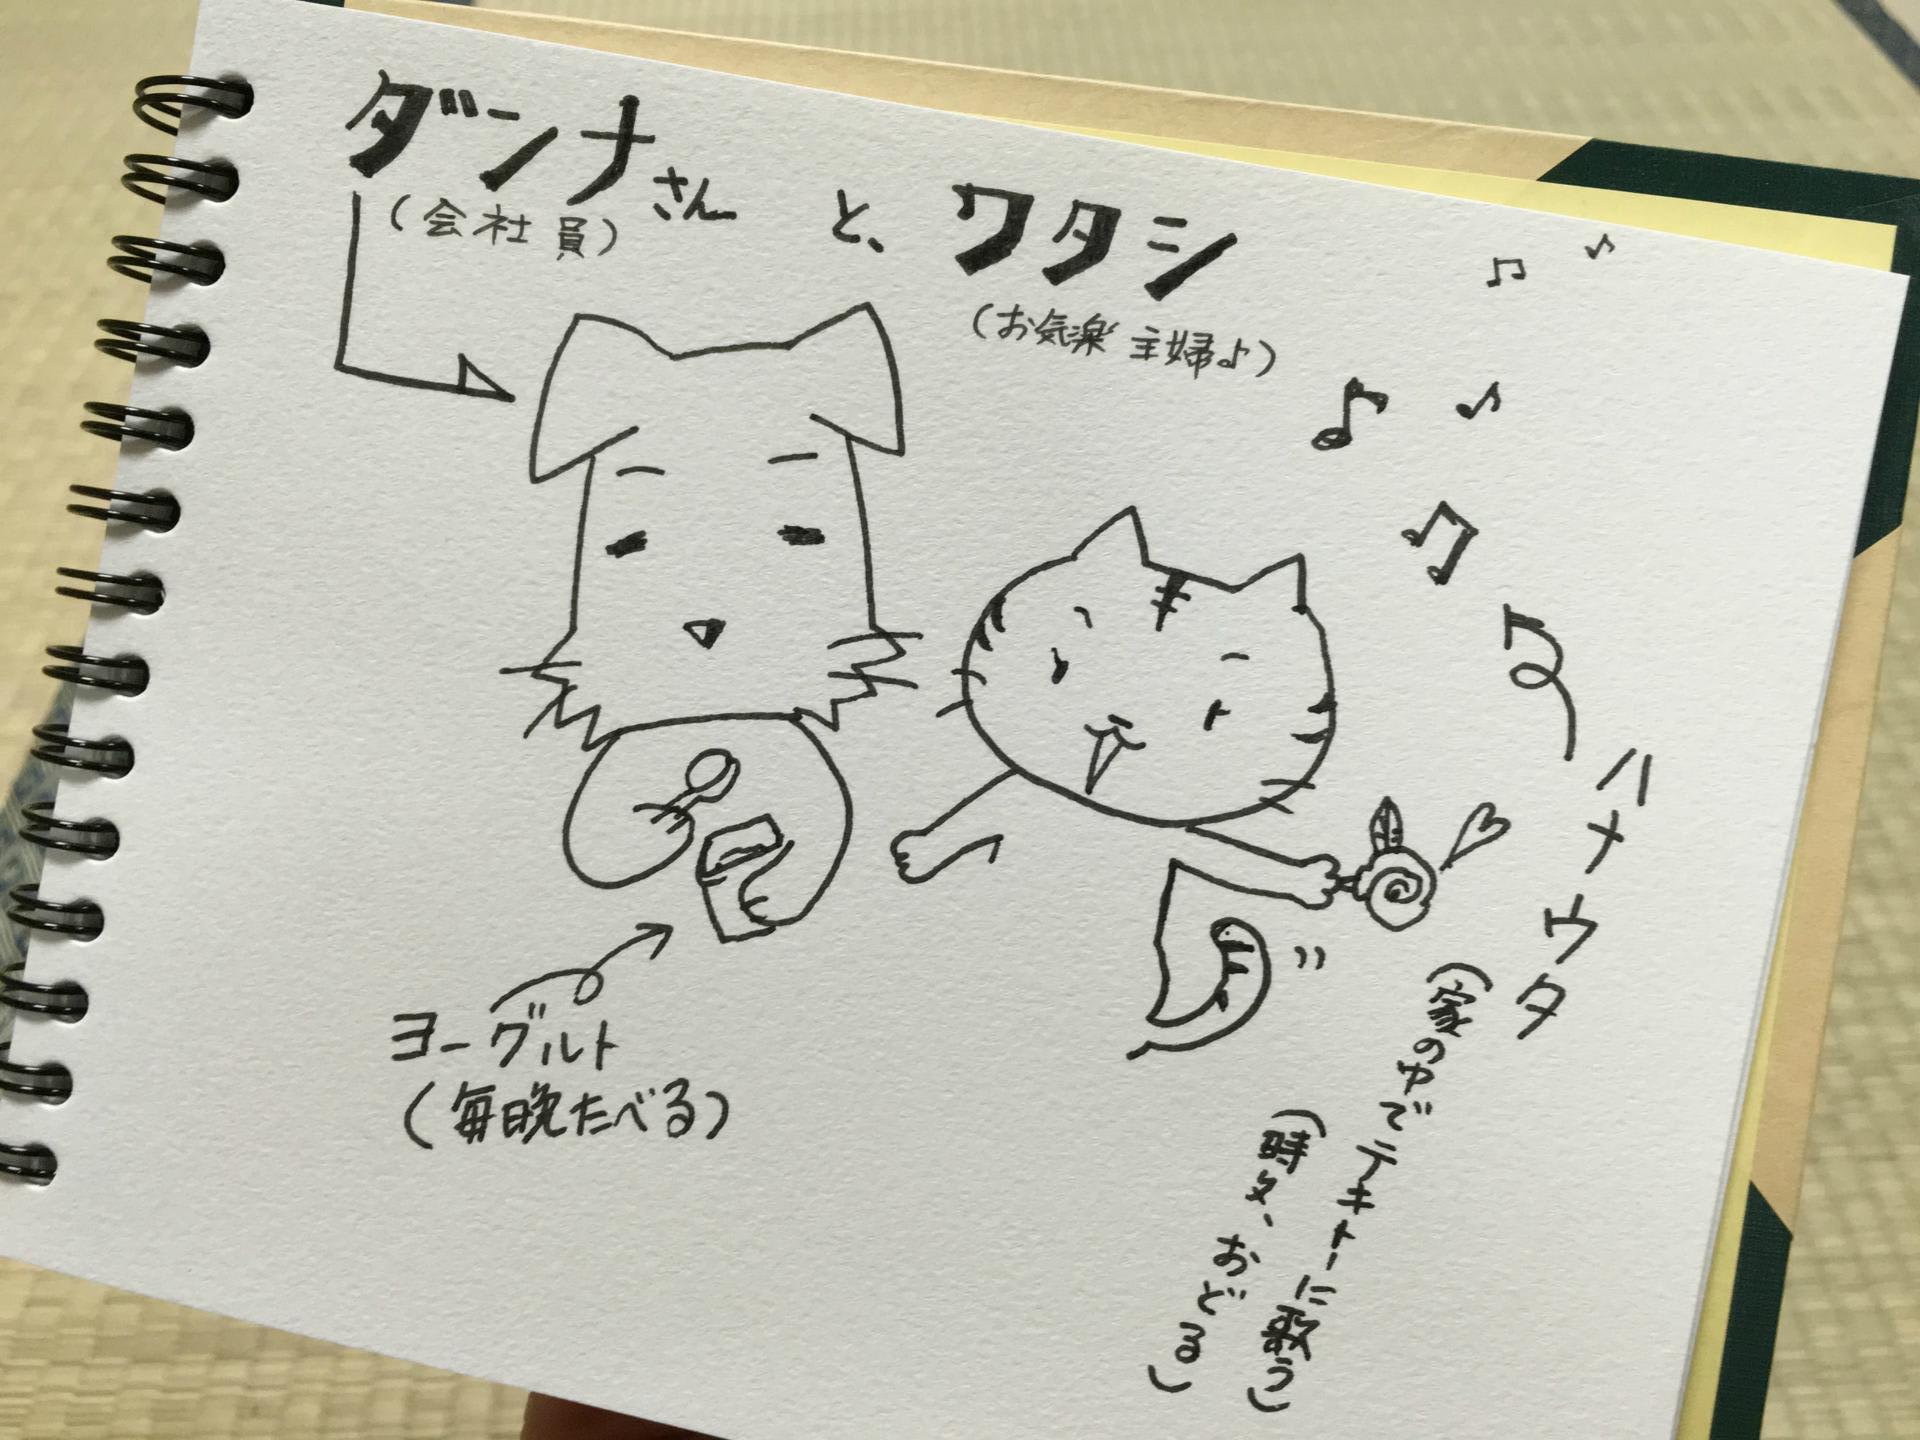 ダンナさん と、ワタシ
(会社員)
(お気楽主婦♪)
ヨーグルト
(毎日晩たべる)
ハナウタ
(家の中でテキトーに歌う)
(時々、おどる)